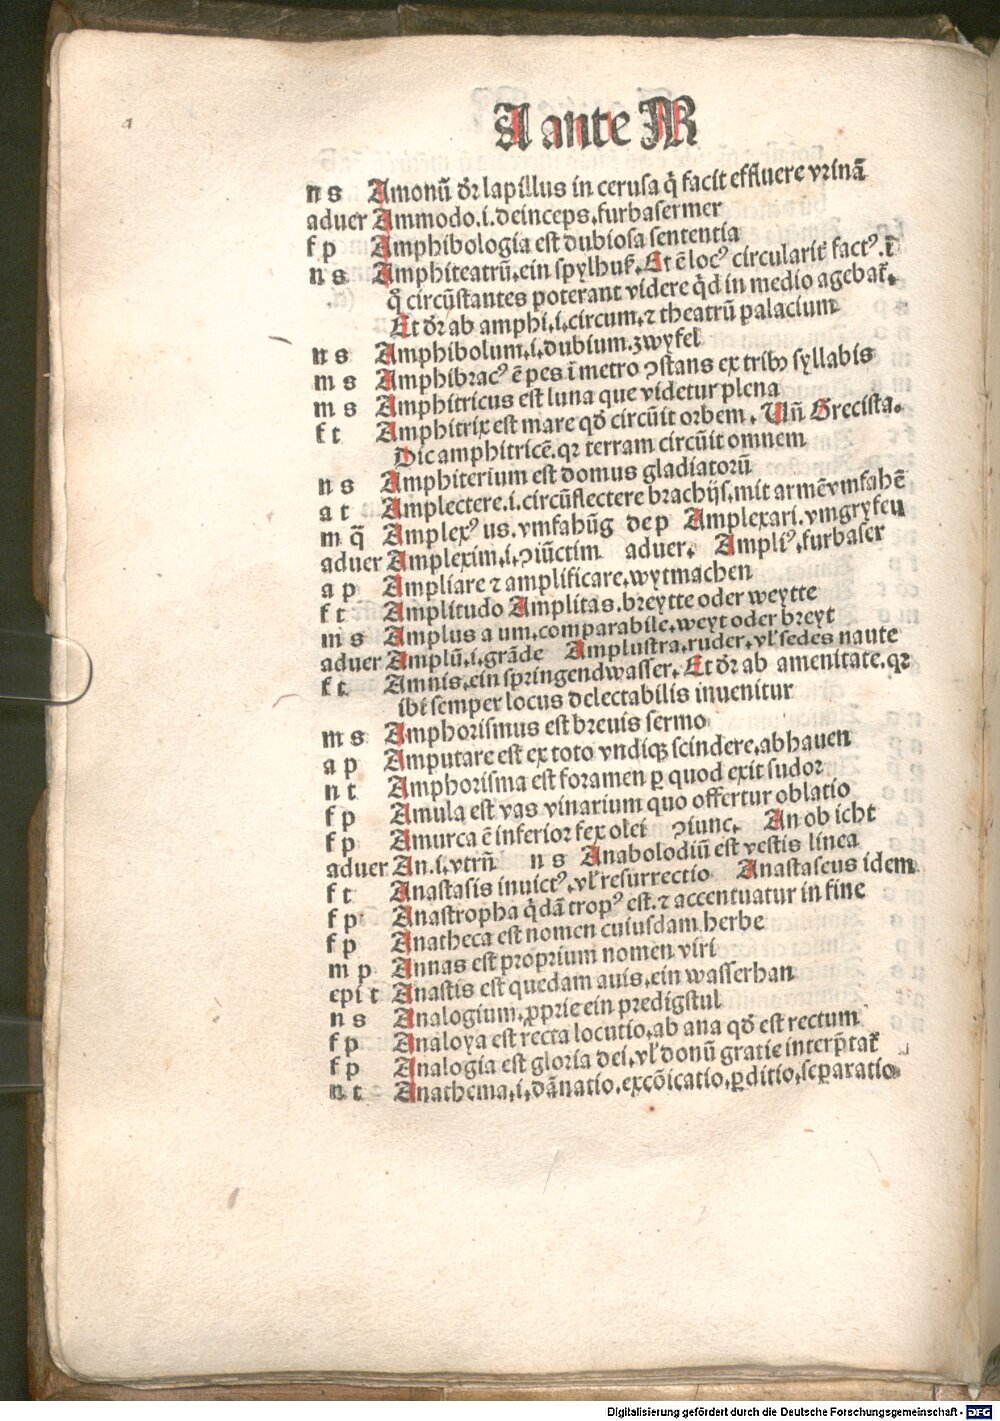 A ante M
n s Amonū dr̄ lapillus in cerusa q̄ facit effluere vrinā
aduer Ammodo.i.deinceps.furbasermer
f p Amphibologia est dubiosa sententia
n s Amphiteatrū.ein spylhuß. Et ē locꝰ circularit̄ factꝰ.ī
q̊ circūstantes poterant videre qd̄ in medio agebat̄.
Et dr̄ ab amphi.i.circum.⁊ theatrū palacium
n s Amphibolum.i.dubium.zwyfel
m s Amphibracꝰ ē pes ī metro ꝯstans ex tribꝫ syllabis
m s Amphitricus est luna que videtur plena
f t Amphitrix est mare qd̄ circūit orbem. Vñ Grecista.
Dic amphitricē.qꝛ terram circūit omnem
n s Amphiterium est domus gladiatorū
a t Amplectere.i.circūflectere brachijs.mit armē vmfahē
m q̄ Amplexꝰ us.vmfahūg dep Amplexari.vmgryfen
aduer Amplexim.i.ꝯiūctim aduer. Ampliꝰ.furbaser
a p Ampliare ⁊ amplificare.wytmachen
f t Amplitudo Amplitas.breytte oder weytte
m s Amplus a um.comparabile.weyt oder breyt
aduer Amplū.i.grāde Amplustra.ruder.vl̄ sedes naute
f t Amnis.ein springendwasser. Et dr̄ ab amenitate.qꝛ
ibi semper locus delectabilis inuenitur
m s Amphorismus est breuis sermo
a p Amputare est ex toto vndiqꝫ scindere.abhauen
n t Amphorisma est foramen ꝑ quod exit sudor
f p Amula est vas vinarium quo offertur oblatio
f p Amurca ē inferior fex olei ꝯiunc. An ob icht
aduer An.i.vtrū n s Anabolodiū est vestis linea
f t Anastasis inuictꝰ.vl̄ resurrectio Anastaseus idem
f p Anastropha q̄dā tropꝰ est.⁊ accentuatur in fine
f p Anatheca est nomen cuiusdam herbe
m p Annas est proprium nomen viri
epi t Anastis est quedam auis.ein wasserhan
n s Analogium.ꝓprie ein predigstul
f p Analoya est recta locutio.ab ana qd̄ est rectum
f p Analogia est gloria dei.vl̄ donū gratie interp̄tat̄
n t Anathema.i.dānatio.excōicatio.ꝑditio.seꝑaratio
Digitalisierung gefördert durch die Deutsche Forschungsgemeinschaft - DFG